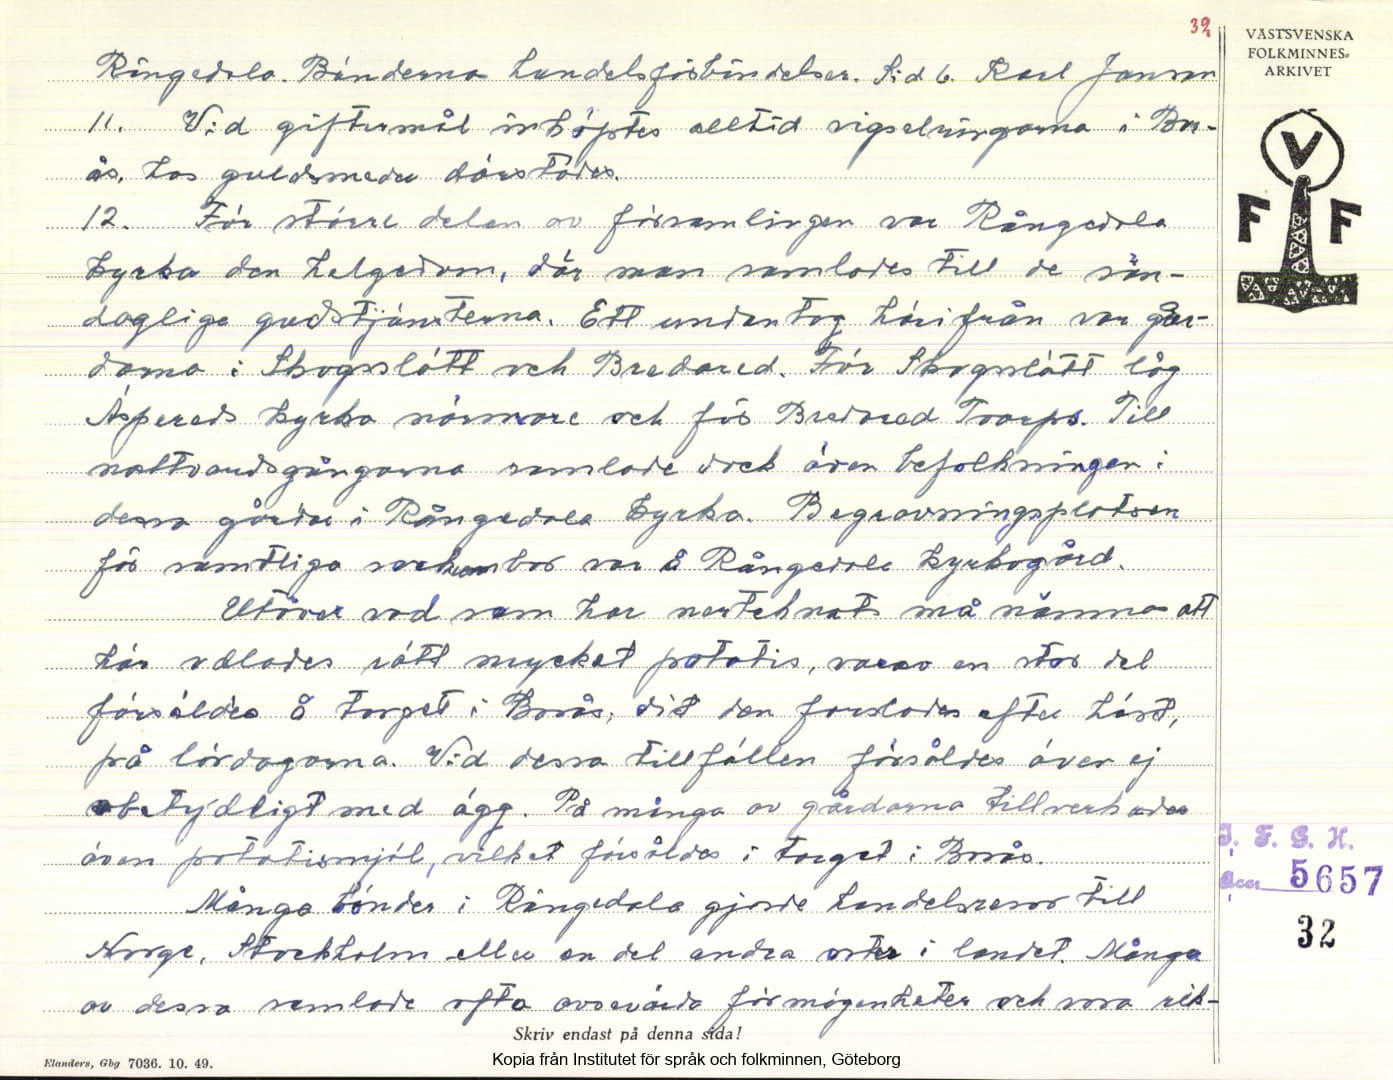 39
VÄSTSVENSKA
FOLKMINNES-
ARKIVET
V
F F
Rångedala. Böndernas handelsförbindelser. Sid 6. Karl Janson
11. Vid giftermål inköptes alltid vigselringarna i Bor-
ås, hos guldsmeder därstädes.
12. För större delen av församlingen var Rångedala
kyrka den helgedom, där man samlades till de sön-
dagliga gudstjänsterna. Ett undantag härifrån var går-
darna i Skogsslätt och Bredared. För Skogsslätt låg
Äspereds kyrka närmare och för Bredared Toarps. Till
nattvardsgångarna samlade dock även befolkningen i
dessa gårdar i Rångedala kyrka. Begravningsplatsen
för samtliga sockenbor var å Rångedala kyrkogård.
Utöver vad som har nertecknats må nämnas att
här odlades rätt mycket potatis, varav en stor del
försåldes å torget i Borås, dit den forslades efter häst,
på lördagarna. Vid dessa tillfällen försåldes även ej
obetydligt med ägg. På många av gårdarna tillverkades
även potatismjöl, vilket försåldes i torget i Borås.
Många bönder i Rångedala gjorde handelsresor till
Norge, Stockholm eller en del andra orter i landet. Många
av dessa samlade ofta avsevärda förmögenheter och voro rik-
I. F. G. H.
Acc 5657
32
Skriv endast på denna sida!
Elanders, Gbg 7036. 10. 49.
Kopia från Institutet för språk och folkminnen, Göteborg